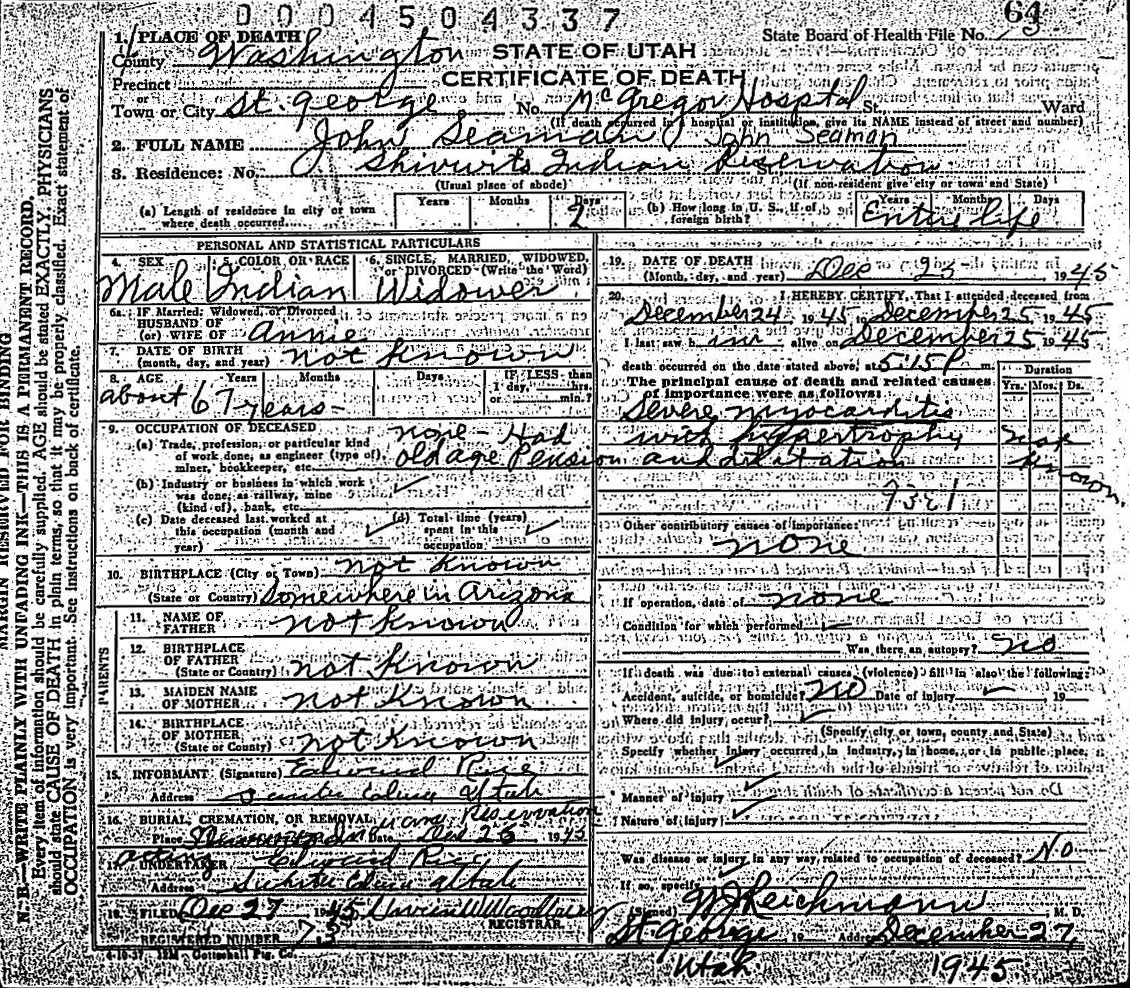 0004504337
64
State Board of Health File No. 73
1. PLACE OF DEATH
County Washington
STATE OF UTAH
Precinct
CERTIFICATE OF DEATH
Town or City St. George No. McGregor Hosptal St. Ward
(If death occurred in a hospital or institution, give its NAME instead of street and number)
2. FULL NAME John Seaman John Seaman
3. Residence: No. Shivwits Indian Reservation St.
(Usual place of abode) (If non-resident give city or town and State)
(a) Length of residence in city or town where death occurred Years Months Days 2
(b) How long in U. S., if of foreign birth? Years Months Days Entire life
PERSONAL AND STATISTICAL PARTICULARS
4. SEX Male
5. COLOR OR RACE Indian
6. SINGLE, MARRIED, WIDOWED, or DIVORCED (Write the Word) Widower
6a. IF Married, Widowed, or Divorced
HUSBAND OF
(or) WIFE OF Annie
7. DATE OF BIRTH
(month, day, and year) not Known
8. AGE Years Months Days IF LESS than 1 day, hrs. or min.?
about 67 years-
9. OCCUPATION OF DECEASED
(a) Trade, profession, or particular kind of work done, as engineer (type of), miner, bookkeeper, etc. none - Had old age Pension
(b) Industry or business in which work was done, as railway, mine (kind of), bank, etc.
(c) Date deceased last worked at this occupation (month and year)
(d) Total time (years) spent in this occupation
10. BIRTHPLACE (City or Town) not Known
(State or Country) Somewhere in Arizona
PARENTS
11. NAME OF FATHER not Known
12. BIRTHPLACE OF FATHER (State or Country) not Known
13. MAIDEN NAME OF MOTHER not Known
14. BIRTHPLACE OF MOTHER (State or Country) not Known
15. INFORMANT (Signature) Edward Rice
Address Utah
16. BURIAL, CREMATION, OR REMOVAL Reservation
Place Date Dec 26 1945
17. UNDERTAKER Edward Rice
Address Utah
18. FILED Dec 27 1945
REGISTRAR.
REGISTERED NUMBER 73
19. DATE OF DEATH
(Month, day, and year) Dec 25 1945
20. I HEREBY CERTIFY, That I attended deceased from
December 24 1945 to December 25 1945
I last saw him alive on December 25 1945
death occurred on the date stated above, at 5:15 P m.
The principal cause of death and related causes of importance were as follows:
Duration
Yrs. Mos. Ds.
Severe myocarditis
with hypertrophy not
and dilitation known
93c1
Other contributory causes of importance:
none
If operation, date of none
Condition for which performed
Was there an autopsy? no
If death was due to external causes (violence) fill in also the following:
Accident, suicide, or homicide? no Date of injury 19
Where did injury occur?
(Specify city or town, county and State)
Specify whether injury occurred in industry, in home, or in public place.
Manner of injury
Nature of injury
Was disease or injury in any way related to occupation of deceased? No
If so, specify
(Signed) W J Reichmann M. D.
St. George 19 Address December 27
Utah. 1945.
MARGIN RESERVED FOR BINDING
N. B.—WRITE PLAINLY WITH UNFADING INK—THIS IS A PERMANENT RECORD.
Every item of information should be carefully supplied. AGE should be stated EXACTLY. PHYSICIANS
should state CAUSE OF DEATH in plain terms, so that it may be properly classified. Exact statement of
OCCUPATION is very important. See instructions on back of certificate.